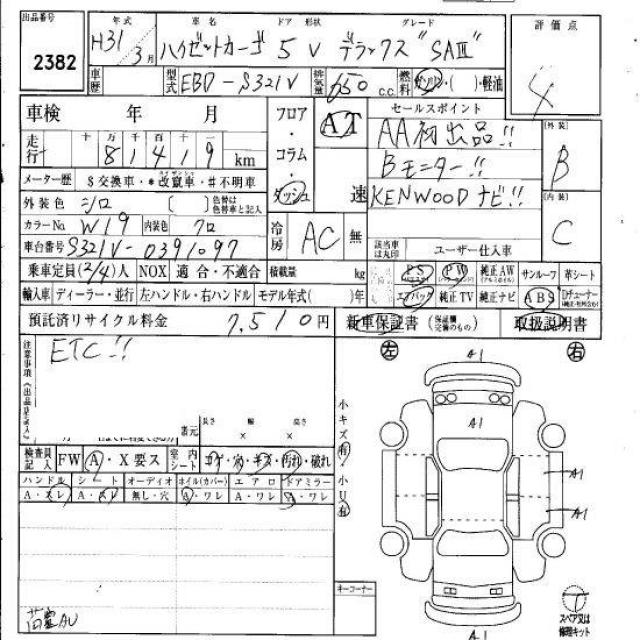 出品番号 年式 車名 ドア 形状 グレード 評価点
2382 H31 3月 ハイゼットカーゴ 5 V デラックス "SAⅢ" 4
車歴 型式 EBD-S321V 排気量 650 c.c. 燃料 ガソリン・( )・軽油
車検 年 月 フロア・コラム・ダッシュ AT 速 セールスポイント
走行 十 万 千 百 十 一 8 1 4 1 9 km AA初出品!! 外装 B
メーター歴 $交換車・*改竄車・#不明車 Bモニター!!
外装色 シロ ( ) 色替は色替車と記入 KENWOODナビ!! 内装 C
カラーNo W19 内装色 クロ 冷房 AC 無 該当車は丸印 ユーザー仕入車
車台番号 S321V-0391097
乗車定員(2/4)人 NOX 適合・不適合 積載量 kg PS PW 純正AW サンルーフ 革シート
輸入車 ディーラー・並行 左ハンドル・右ハンドル モデル年式( )年 エアバック 純正TV 純正ナビ ABS
預託済リサイクル料金 7,510円 新車保証書(保証欄交換のもの) 取扱説明書
注意事項《出品店記入》 ETC!! 左 A1 右
諸元 長さ 幅 高さ × × 小キズ有・小U有 A1
検査員記入 FW A・X要ス 室内シート コゲ・穴・キズ・汚れ・破れ A1
ハンドル シート オーディオ ホイル(カバー) エアロ ドアミラー
A・スレ A・スレ 無し・穴 A・ワレ A・ワレ A・ワレ A1
キーコーナー スペア又は修理キット
A1